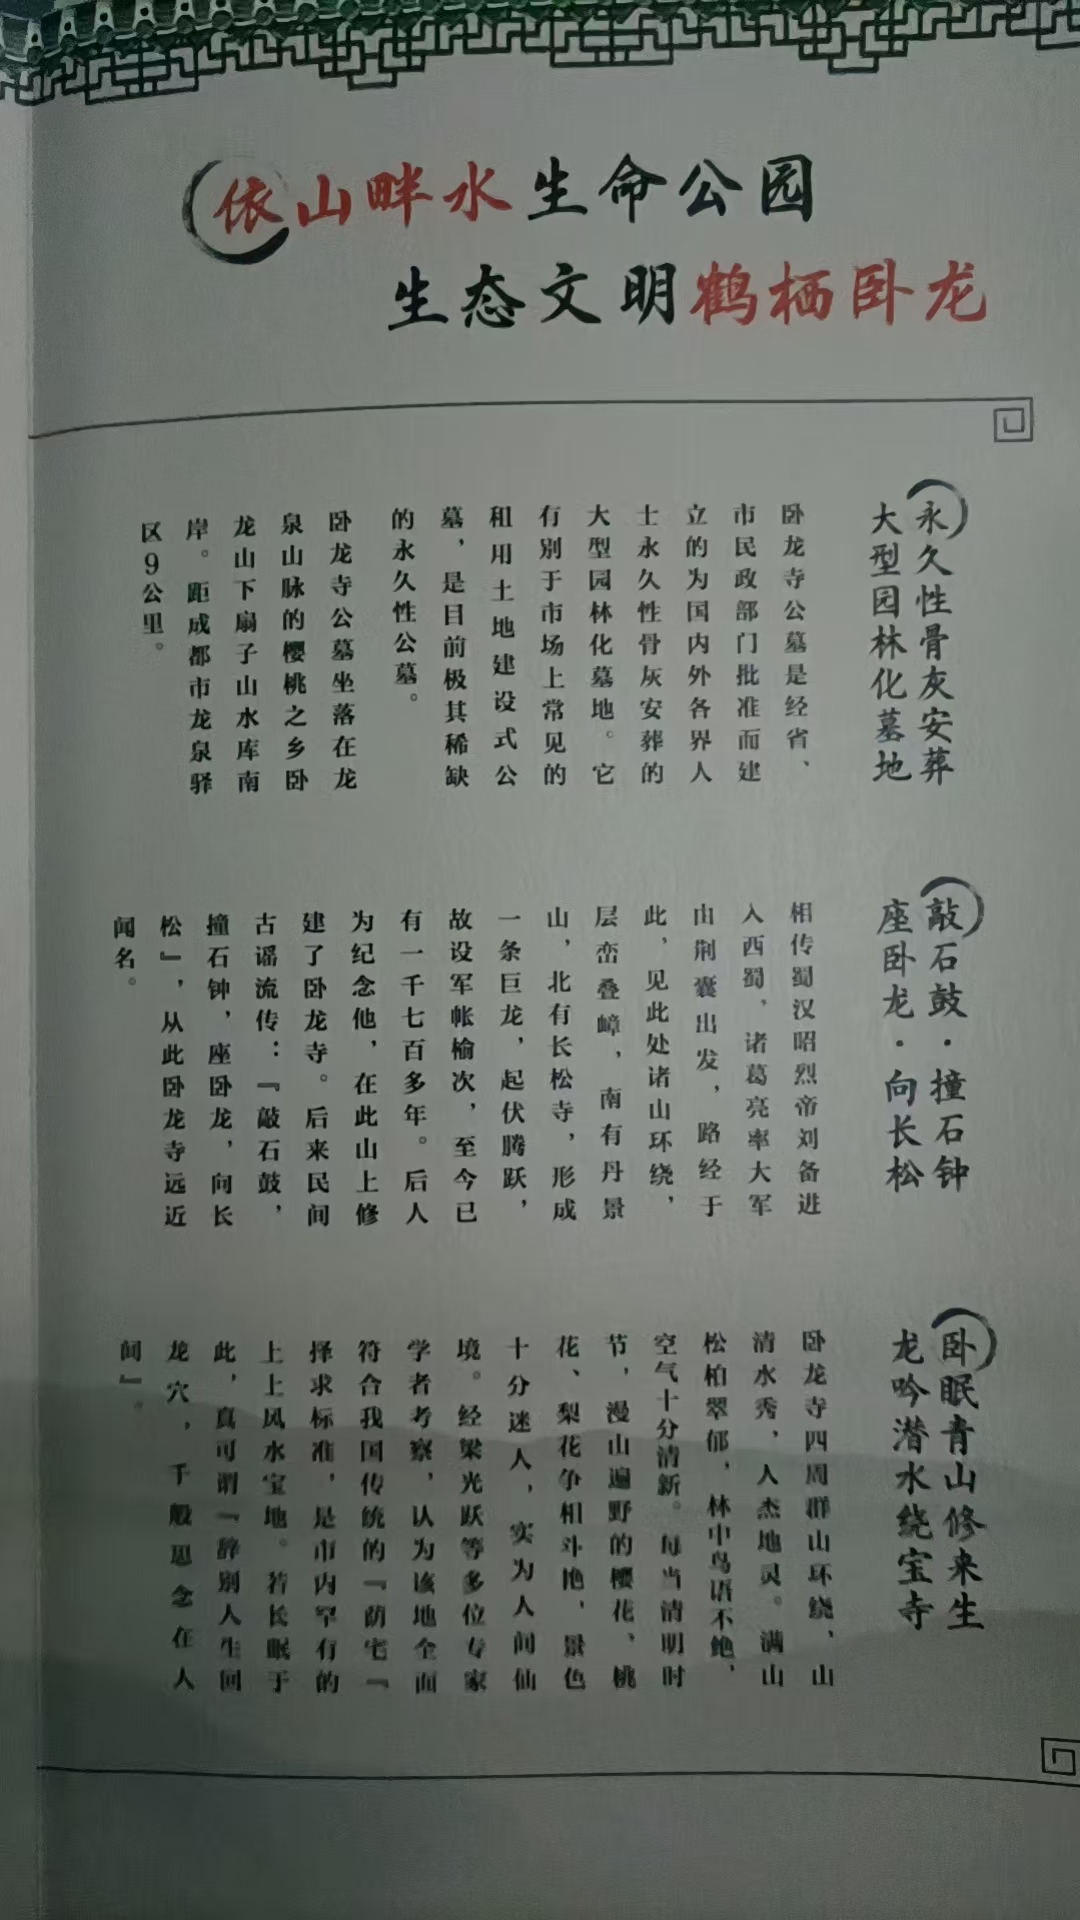 依山畔水生命公园
生态文明鹤栖卧龙
永久性骨灰安葬
大型园林化墓地
卧龙寺公墓是经省、
市民政部门批准而建
立的为国内外各界人
士永久性骨灰安葬的
大型园林化墓地。它
有别于市场上常见的
租用土地建设式公
墓，是目前极其稀缺
的永久性公墓。
卧龙寺公墓坐落在龙
泉山脉的樱桃之乡卧
龙山下扇子山水库南
岸。距成都市龙泉驿
区9公里。
敲石鼓·撞石钟
座卧龙·向长松
相传蜀汉昭烈帝刘备进
入西蜀，诸葛亮率大军
由荆囊出发，路经于
此，见此处诸山环绕，
层峦叠嶂，南有丹景
山，北有长松寺，形成
一条巨龙，起伏腾跃，
故设军帐榆次，至今已
有一千七百多年。后人
为纪念他，在此山上修
建了卧龙寺。后来民间
古谣流传：『敲石鼓，
撞石钟，座卧龙，向长
松』，从此卧龙寺远近
闻名。
卧眠青山修来生
龙吟潜水绕宝寺
卧龙寺四周群山环绕，山
清水秀，人杰地灵。满山
松柏翠郁，林中鸟语不绝，
空气十分清新。每当清明时
节，漫山遍野的樱花、桃
花、梨花争相斗艳，景色
十分迷人，实为人间仙
境。经梁光跃等多位专家
学者考察，认为该地全面
符合我国传统的『荫宅『
择求标准，是市内罕有的
上上风水宝地。若长眠于
此，真可谓『辞别人生回
龙穴，千般思念在人
间』。